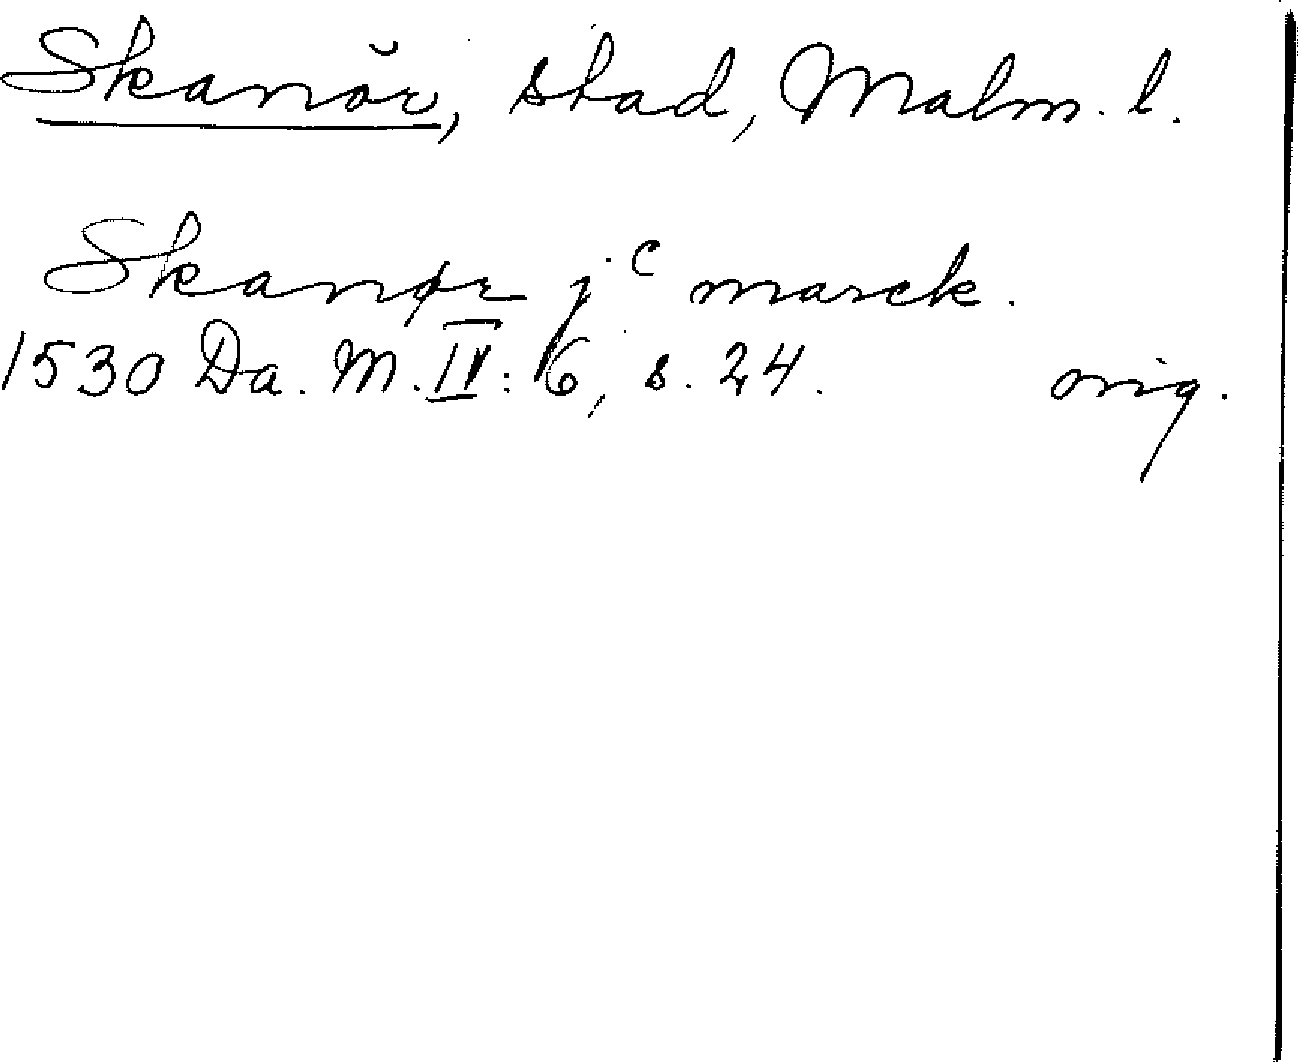 Skanör, stad, Malm. l.
Skanør j c marck.
1530 Da. M. IV: 6, s. 24. orig.